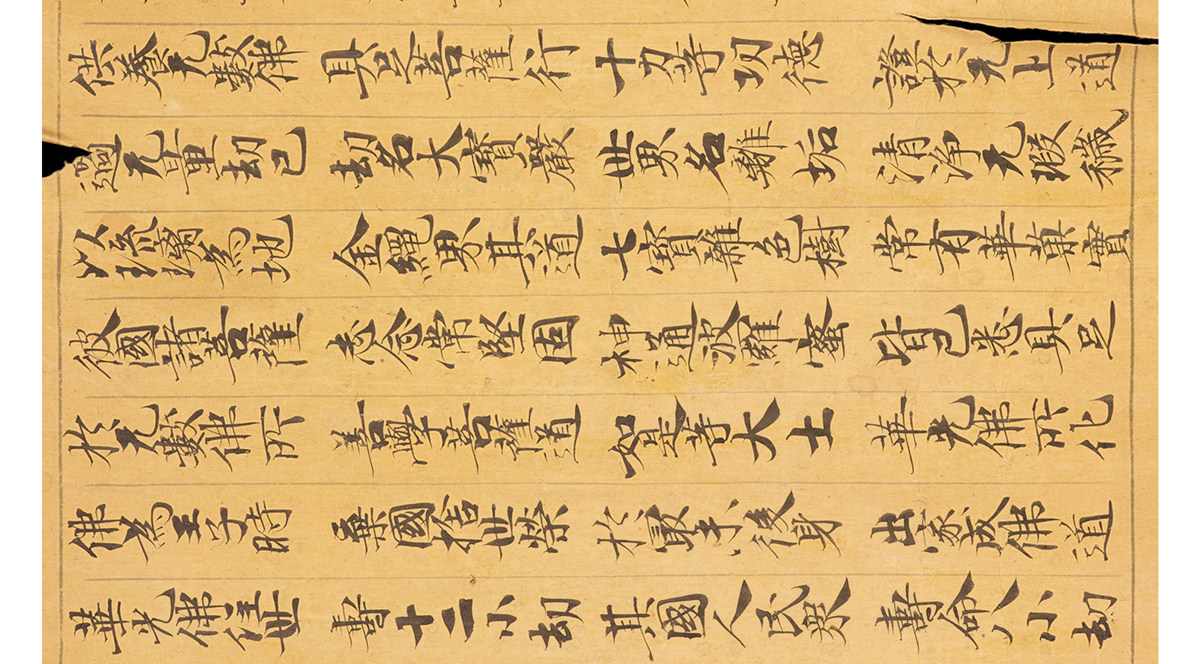 供養无數佛 具足菩薩行 十力等功德 證於无上道
過无量劫已 劫名大寶嚴 世界名離垢 清淨无瑕穢
以琉璃為地 金繩界其道 七寶雜色樹 常有華菓實
彼國諸菩薩 志念常堅固 神通波羅蜜 皆已悉具足
於无數佛所 善學菩薩道 如是等大士 華光佛所化
佛為王子時 棄國捨世榮 於最末後身 出家成佛道
華光佛住世 壽十二小劫 其國人民眾 壽命八小劫